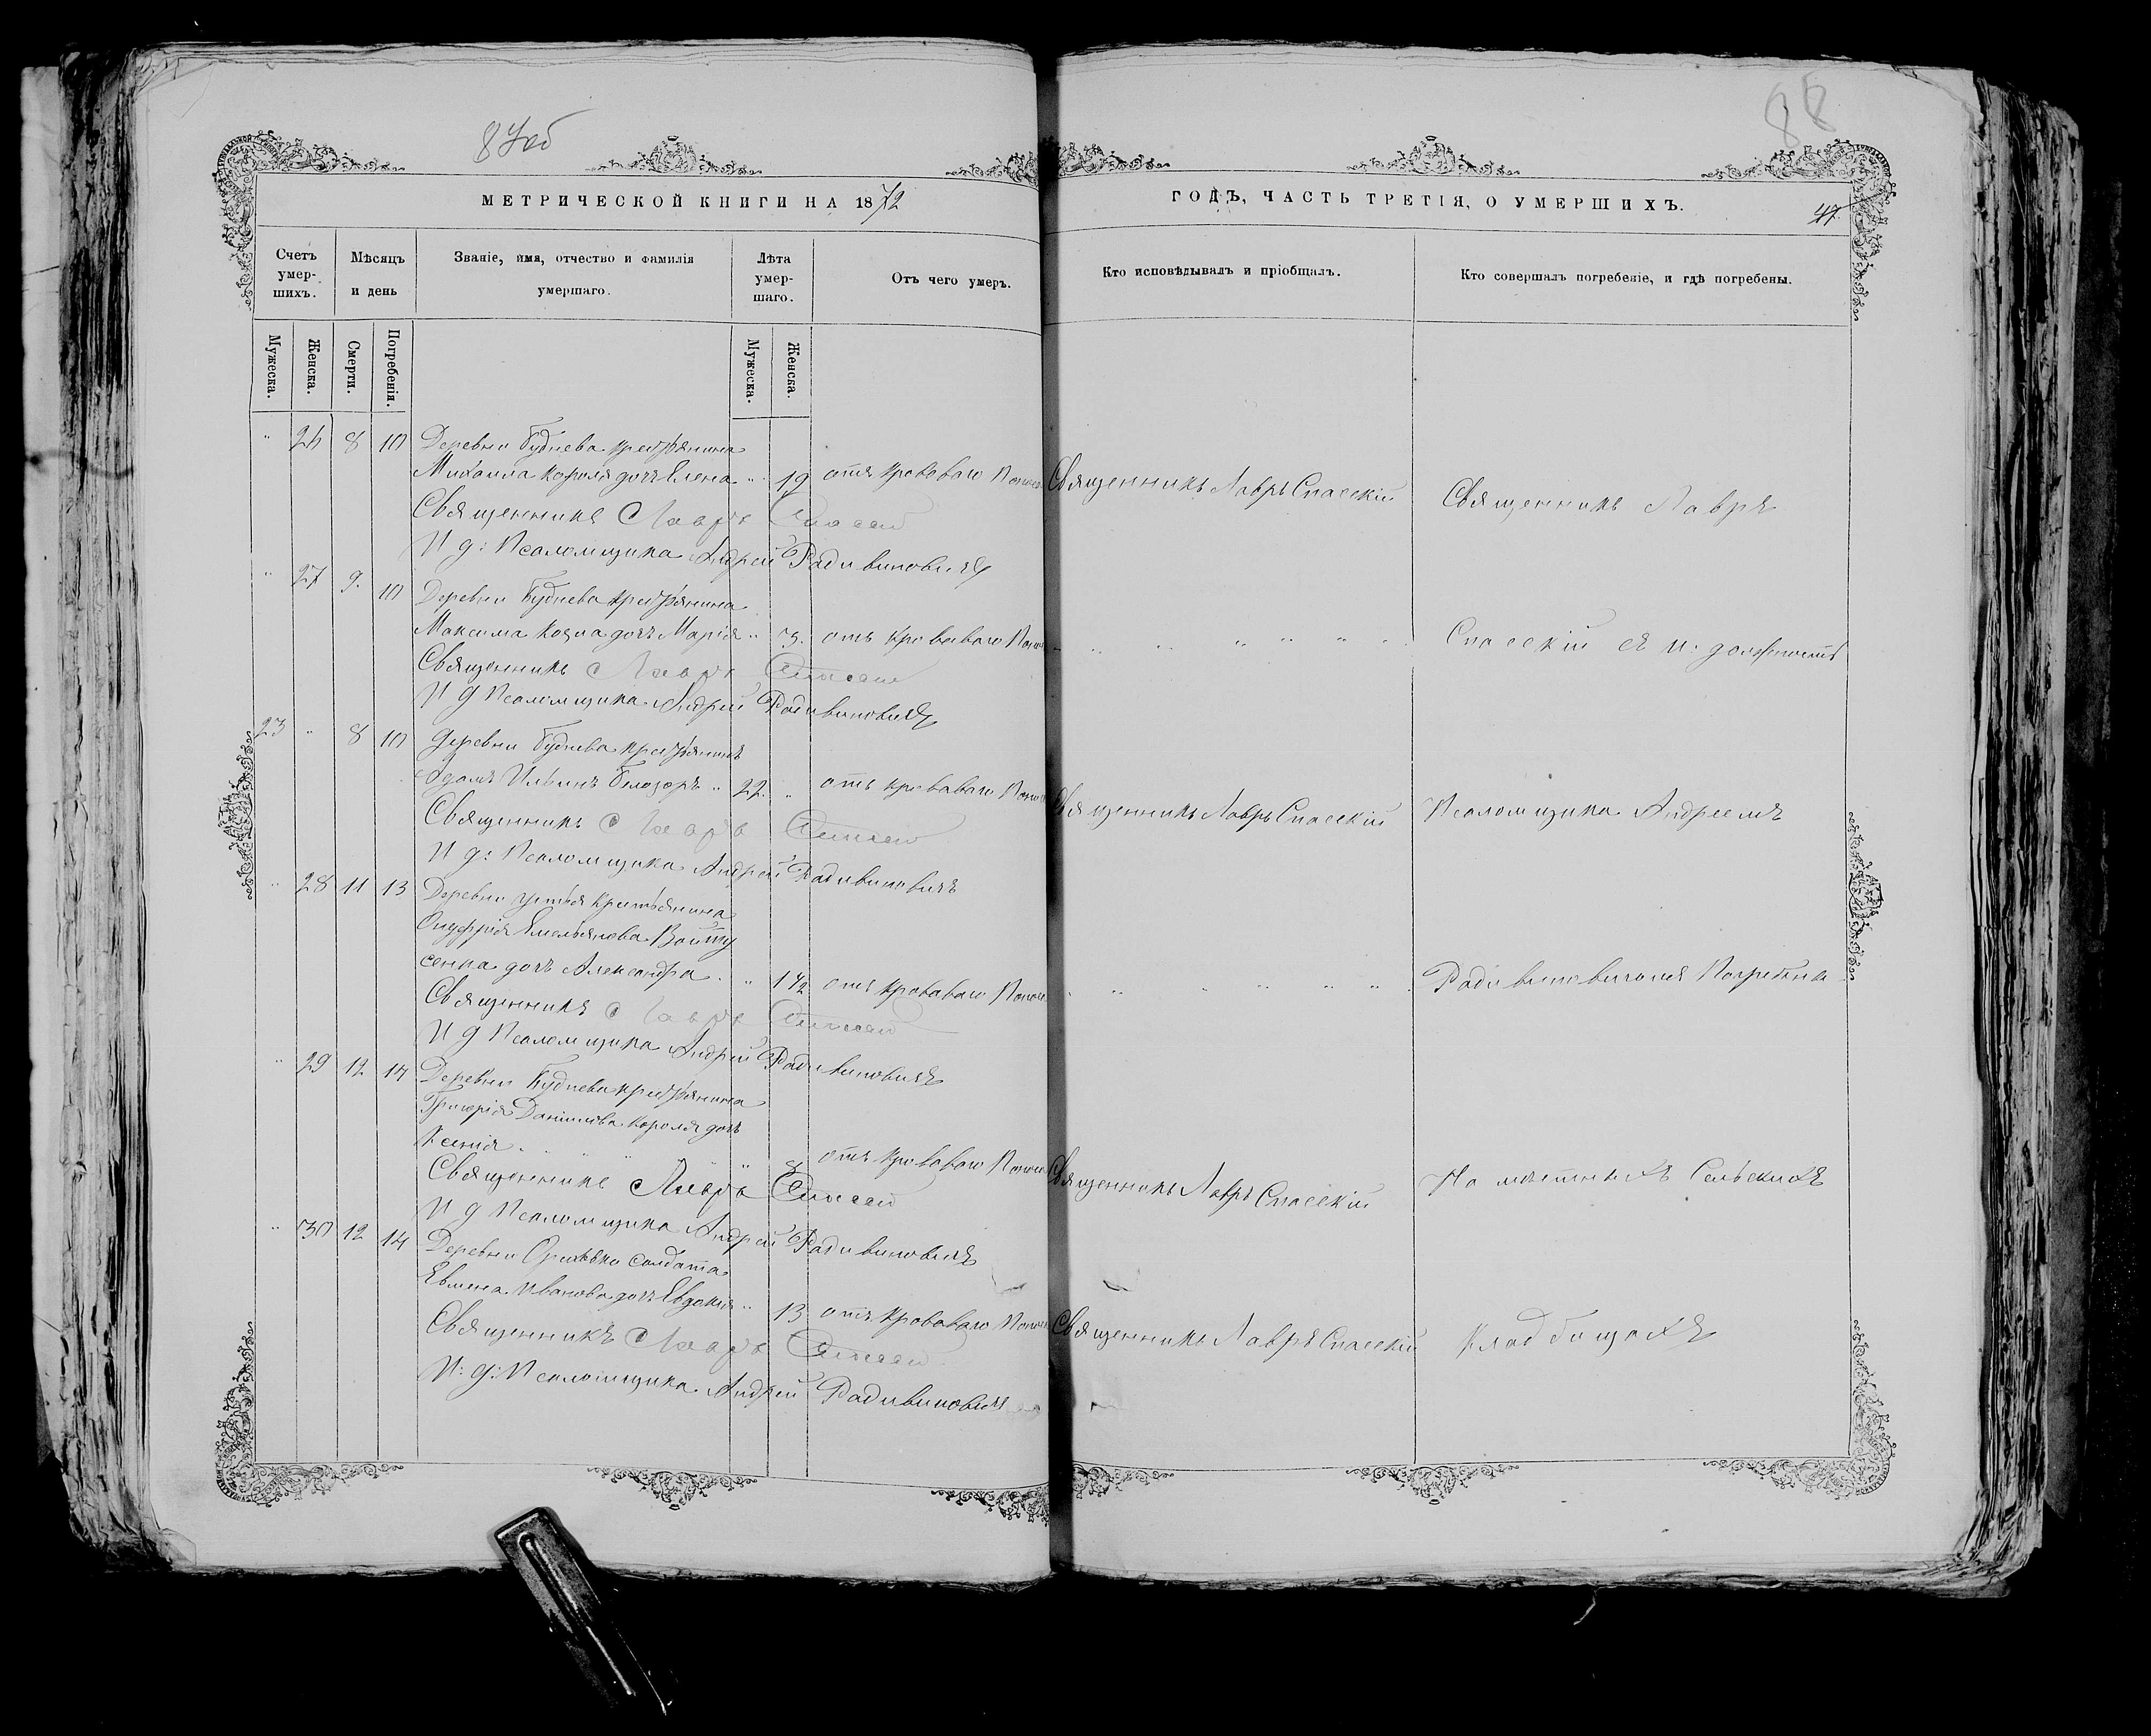 87об
88
МЕТРИЧЕСКОЙ КНИГИ НА 1872
ГОДЪ, ЧАСТЬ ТРЕТІЯ, О УМЕРШИХЪ.
47.
Счетъ умер-шихъ.
Мѣсяцъ и день
Званіе, имя, отчество и фамилія умершаго.
Лѣта умер-шаго.
Отъ чего умеръ.
Кто исповѣдывалъ и пріобщалъ.
Кто совершалъ погребеніе, и гдѣ погребены.
Мужеска.
Женска.
Смерти.
Погребенія.
Мужеска.
Женска.
" 8 10 Деревни Буднева крестьянина
Михаила Короля дочь Елена " 19 отъ кроваваго Священникъ Лавръ Спасскій Священникъ Лавръ
Священникъ Лавръ Спасскій
И д: Псаломщика Андрей Радивиновичъ
" 27 9. 10 Деревни Буднева крестьянина
Максима дочь Марія " 3. отъ кроваваго " " " " " Спасскій съ и. должность
Священникъ Лавръ Спасскій
И д Псаломщика Андрей Радивиновичъ
23 " 8 10 Деревни Буднева крестьянинъ
Адамъ Ильинъ Белозоръ " 22. " отъ кроваваго Священникъ Лавръ Спасскій Псаломщика Андреемъ
Священникъ Лавръ Спасскій
И д: Псаломщика Андрей Радивиновичъ
" 28 11 13 Деревни Устья крестьянина
Онуфрія Емельянова Войту
сенка дочь Александра. " 1 1/2 отъ кроваваго " " " " " Радивиновичемъ Погребена
Священникъ Лавръ Спасскій
И д Псаломщика Андрей Радивиновичъ
" 29 12 14 Деревни Буднева крестьянина
Григорія Данилова Короля дочь
Ксенія. " " " отъ кроваваго Священникъ Лавръ Спасскій На мѣстныхъ Сельскихъ
Священникъ Лавръ Спасскій
И д Псаломщика Андрей Радивиновичъ
" 30 12 14 Деревни солдата
Евмена Иванова дочь Евдокія " 13 отъ кроваваго Священникъ Лавръ Спасскій Кладбищахъ
Священникъ Лавръ Спасскій
И: д: Псаломщика Андрей Радивиновичъ